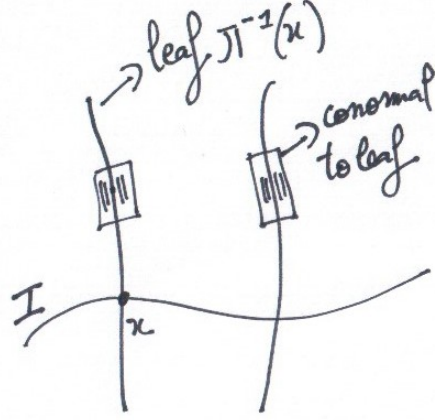 leaf π⁻¹(x)
conormal
to leaf
I
x